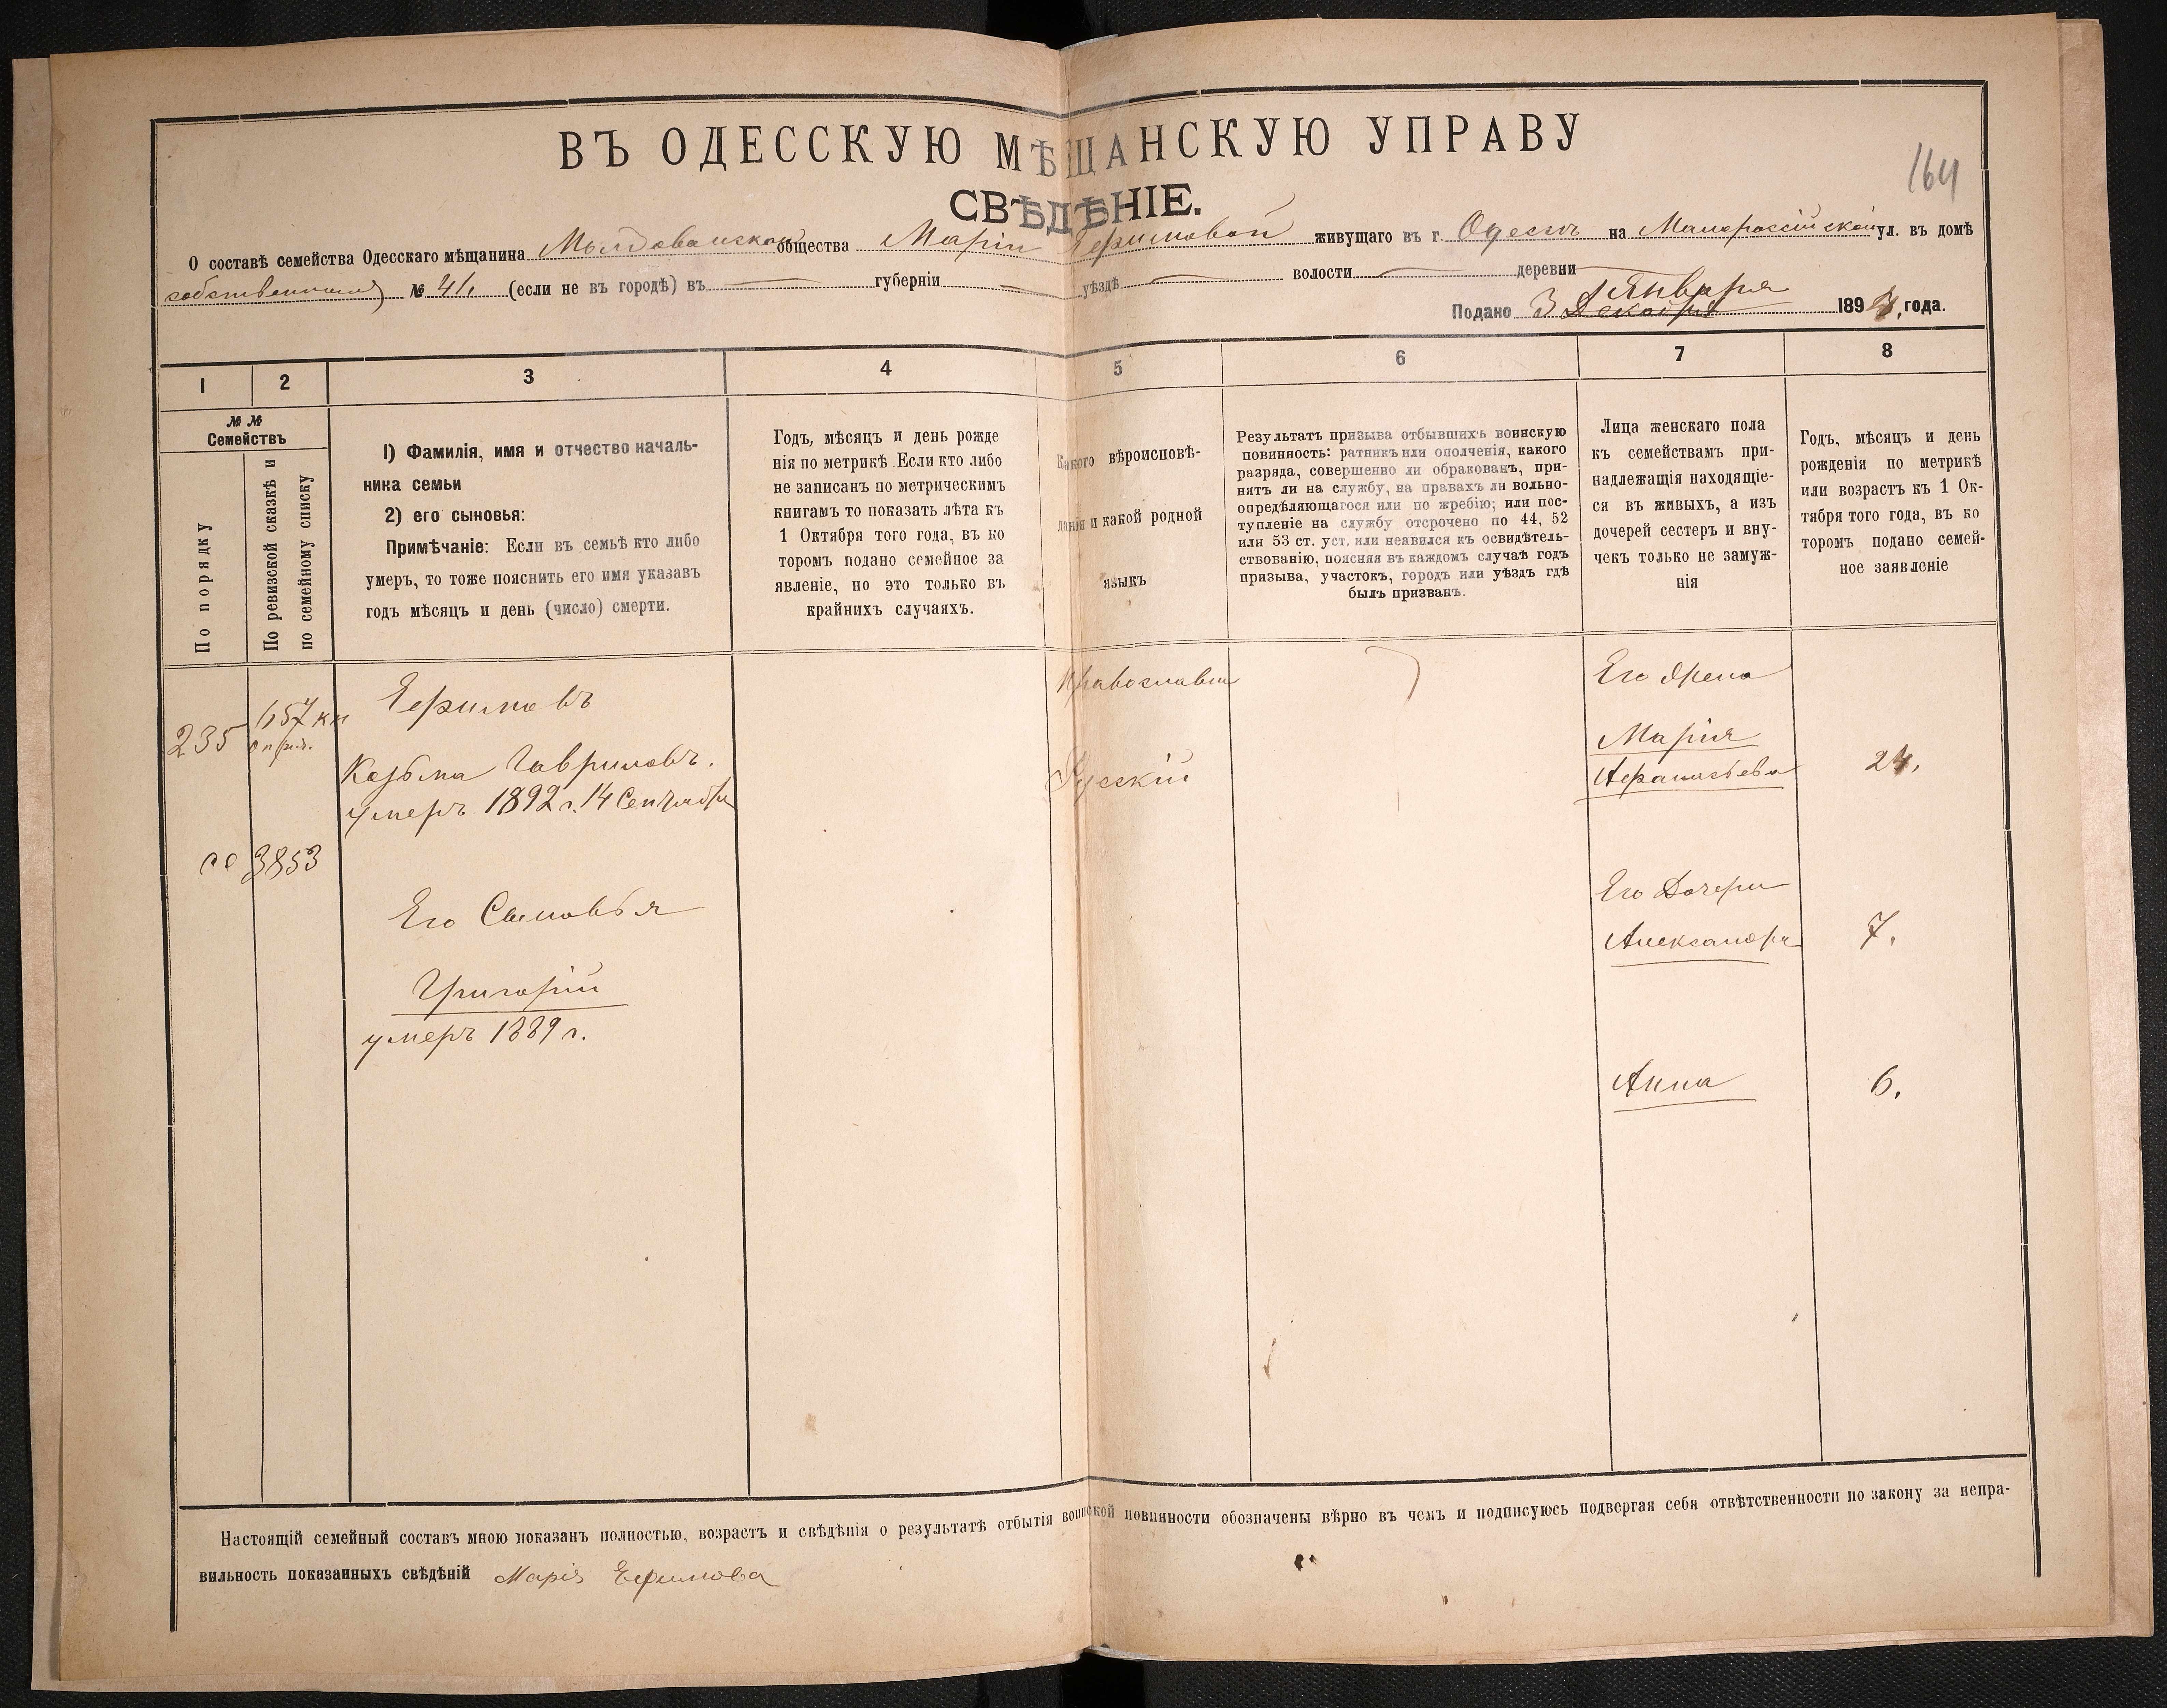 ВЪ ОДЕССКУЮ МѢЩАНСКУЮ УПРАВУ
164
СВѢДѢНІЕ.
О составѣ семейства Одесскаго мѣщанина Молдованскаго общества Маріи Ефимовой живущаго въ г. Одессѣ на Малороссійской ул. въ домѣ
собственномъ № 41. (если не въ городѣ) въ губерніи уѣздѣ волости деревни
Января
Подано 3 Декабря 1893, года.
1 2 3 4 5 6 7 8
№ №
Семействъ
По порядку
По ревизской сказкѣ и
по семейному списку
1) Фамилія, имя и отчество началь-
ника семьи
2) его сыновья:
Примѣчаніе: Если въ семьѣ кто либо
умеръ, то тоже пояснить его имя указавъ
годъ мѣсяцъ и день (число) смерти.
Годъ, мѣсяцъ и день рожде
нія по метрикѣ .Если кто либо
не записанъ по метрическимъ
книгамъ то показать лѣта къ
1 Октября того года, въ ко
торомъ подано семейное за
явленіе, но это только въ
крайнихъ случаяхъ.
Какого вѣроисповѣ-
данія и какой родной
языкъ
Результатъ призыва отбывшихъ воинскую
повинность: ратникъ или ополченія, какого
разряда, совершенно ли обракованъ, при-
нятъ ли на службу, на правахъ ли вольно-
опредѣляющагося или по жребію; или пос-
тупленіе на службу отсрочено по 44, 52
или 53 ст. уст. или неявился къ освидѣтель-
ствованію, поясняя въ каждомъ случаѣ годъ
призыва, участокъ, городъ или уѣздъ гдѣ
былъ призванъ.
Лица женскаго пола
къ семействамъ при-
надлежащія находящіе-
ся въ живыхъ, а изъ
дочерей сестеръ и вну-
чекъ только не замуж-
нія
Годъ, мѣсяцъ и день
рожденія по метрикѣ
или возрастъ къ 1 Ок-
тября того года, въ ко
торомъ подано семей-
ное заявленіе
235
657 кн
се 3853
Ефимовъ
Козьма Гавриловъ.
умеръ 1892 г. 14 Сентября
Его Сыновья
Григорій
умеръ 1889 г.
Православн
Русскій
Его Жена
Марія
Афанасьева 24.
Его Дочери
Александра 7.
Анна 6.
Настоящій семейный составъ мною показанъ полностью, возрастъ и свѣдѣнія о результатѣ отбытія воинской повинности обозначены вѣрно въ чемъ и подписуюсь подвергая себя отвѣтственности по закону за непра-
вильность показанныхъ свѣдѣній Марія Ефимова